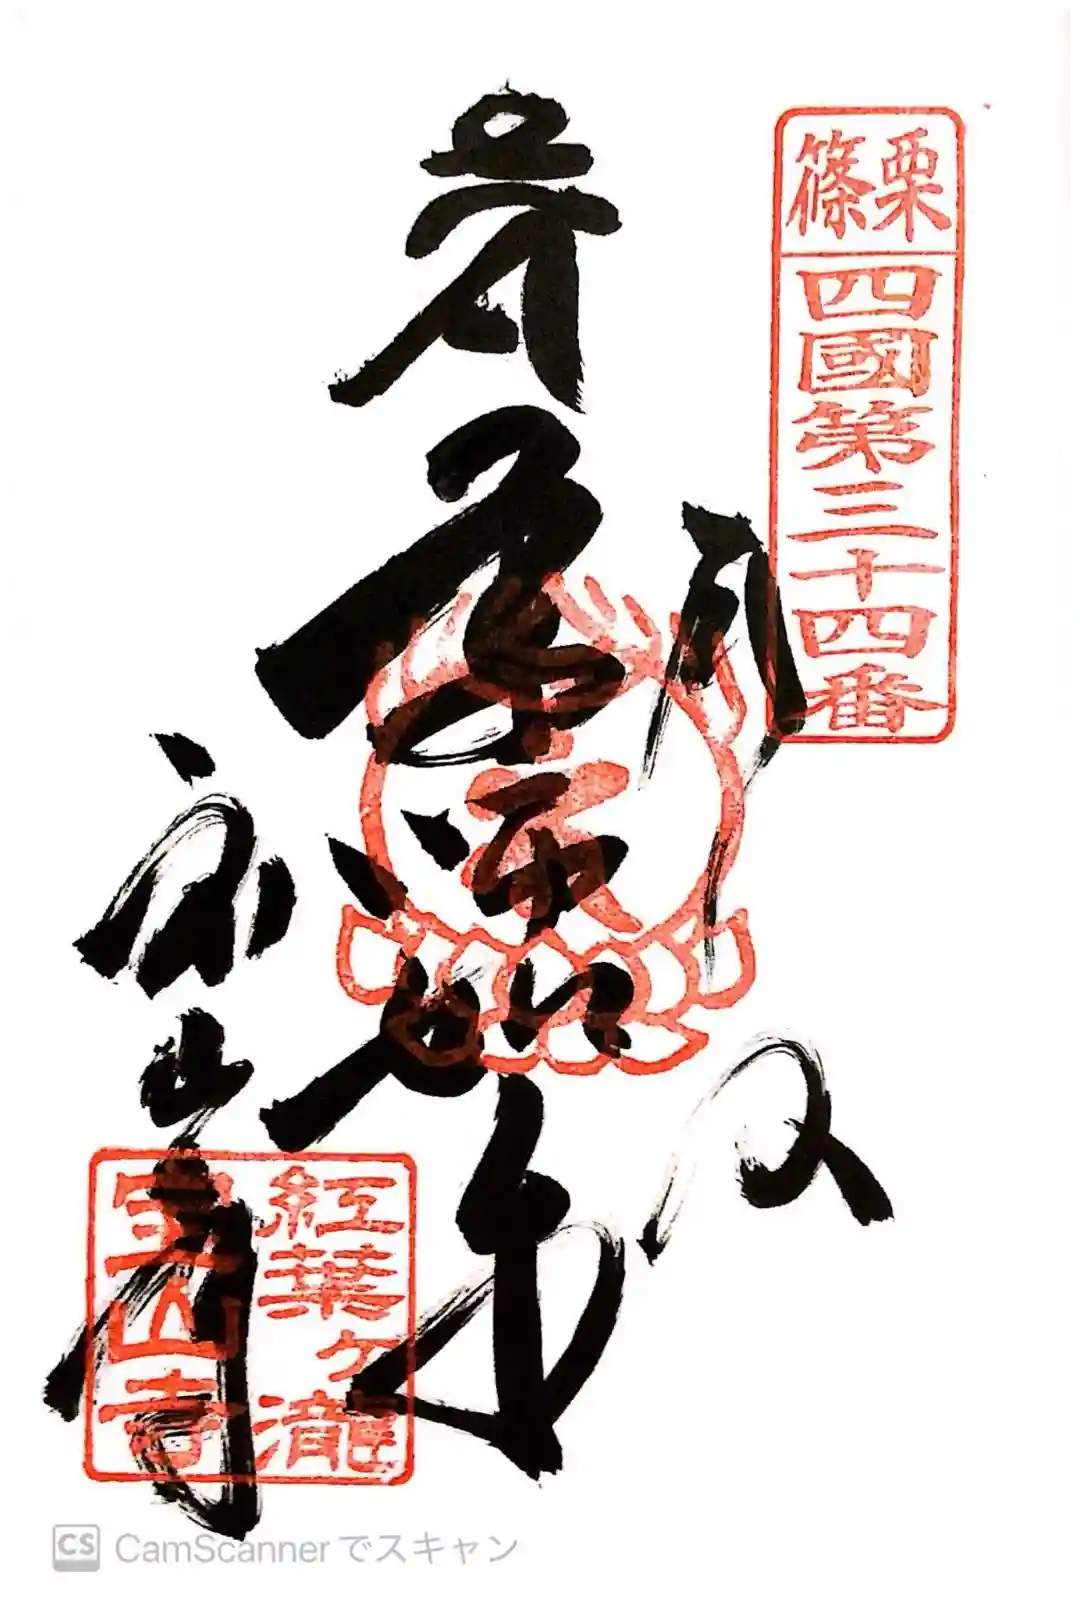 篠栗
四國第三十四番
奉拝
薬師如来
宝山寺
紅葉ヶ瀧
宝山寺
CS CamScanner でスキャン